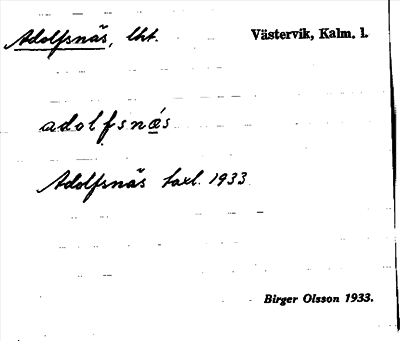 Adolfsnäs, lht. Västervik, Kalm. l.
adolfsnæ̀s
Adolfsnäs taxl. 1933
Birger Olsson 1933.